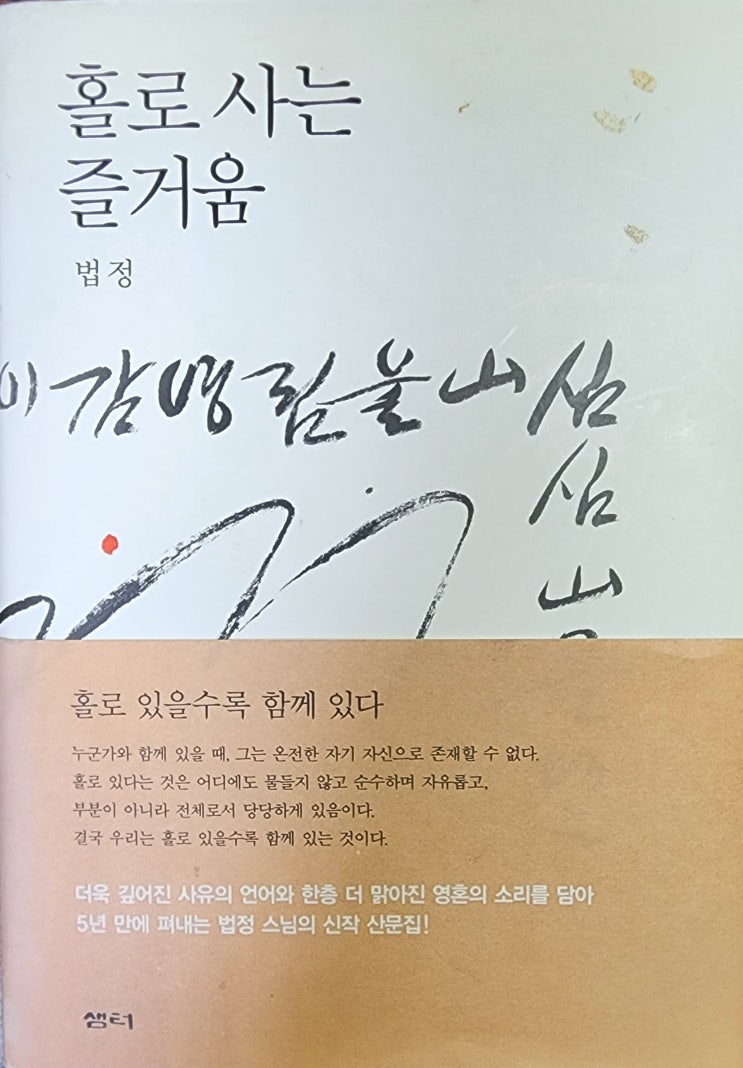 홀로 사는
즐거움
법정
홀로 있을수록 함께 있다
누군가와 함께 있을 때, 그는 온전한 자기 자신으로 존재할 수 없다.
홀로 있다는 것은 어디에도 물들지 않고 순수하며 자유롭고,
부분이 아니라 전체로서 당당하게 있음이다.
결국 우리는 홀로 있을수록 함께 있는 것이다.
더욱 깊어진 사유의 언어와 한층 더 맑아진 영혼의 소리를 담아
5년 만에 펴내는 법정 스님의 신작 산문집!
샘터